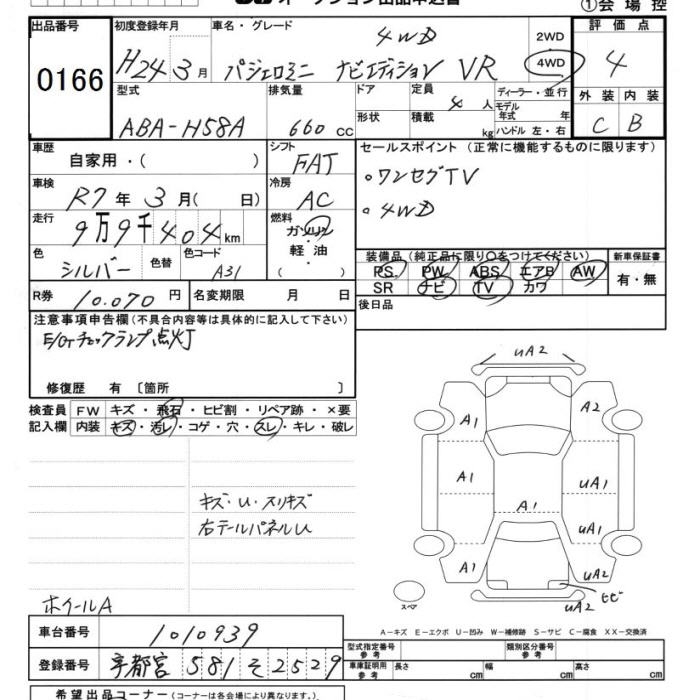 オークション出品申込書
①会場控
出品番号
0166
初度登録年月
H24年3月
車名・グレード
4WD
パジェロミニ ナビエディション VR
2WD
4WD
評価点
4
型式
ABA-H58A
排気量
660cc
ドア
形状
定員
4人
積載
kg
ディーラー・並行
モデル年式 年
ハンドル 左・右
外装 内装
C B
車歴
自家用・( )
シフト
FAT
セールスポイント (正常に機能するものに限ります)
。ワンセグTV
。4WD
車検
R7年3月( 日)
冷房
AC
走行
9万9千404km
燃料
ガソリン
軽油
( )
色
シルバー
色替
色コード
A31
装備品(純正品に限り○をつけてください)
PS PW ABS エアB AW
SR ナビ TV カワ
新車保証書
有・無
R券
10.070円
名変期限 月 日
後日品
注意事項申告欄(不具合内容等は具体的に記入して下さい)
E/Gチェックランプ点灯
修復歴 有 [箇所 ]
検査員
記入欄
FW キズ・飛石・ヒビ割・リペア跡・×要
内装 キズ・汚レ・コゲ・穴・スレ・キレ・破レ
キズ・U・スリキズ
右テールパネルU
ホイールA
UA2
A1
A2
A1
UA1
A1
UA1
A1
UA2
ヒビ
UA2
スペア
A-キズ E-エクボ U-凹み W-補修跡 S-サビ C-腐食 XX-交換済
車台番号
1010939
登録番号
宇都宮 581 そ 2529
型式指定番号
参考
類別区分番号
参考
車庫証明用
参考
長さ cm
幅 cm
高さ cm
希望出品コーナー(コーナーは各会場により異なります。)